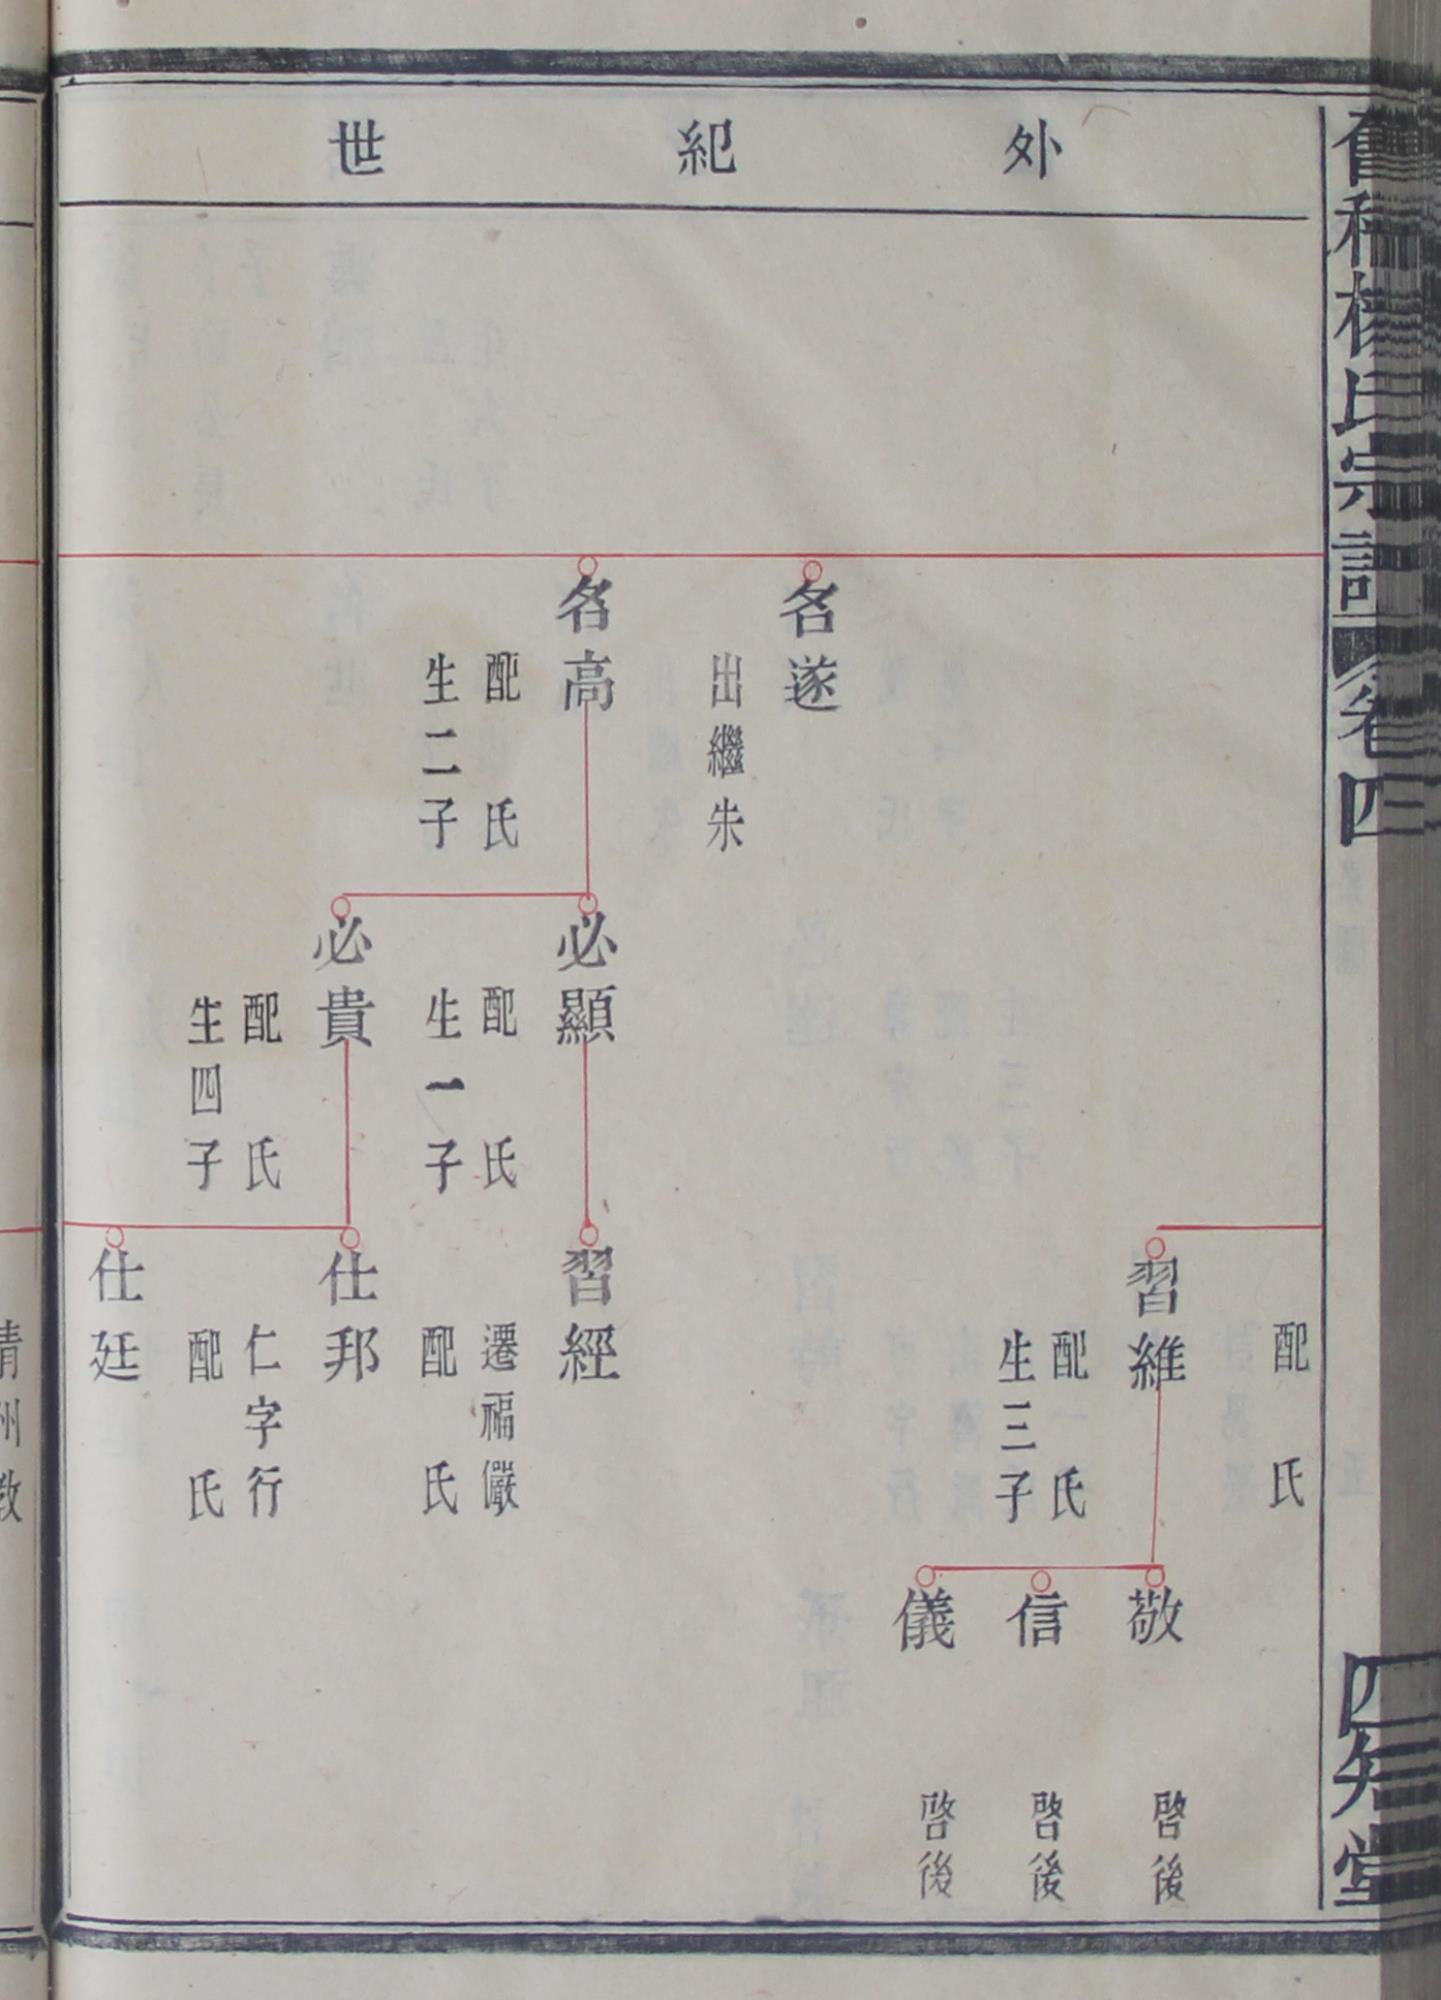 外紀世
舊程楊氏宗譜
卷四
四知堂
配 氏
習維
配 氏
生三子
敬
啓後
信
啓後
儀
啓後
名遂
出繼朱
名高
配 氏
生二子
必顯
配 氏
生一子
習經
遷福儼
配 氏
必貴
配 氏
生四子
仕邦
仁字行
配 氏
仕廷